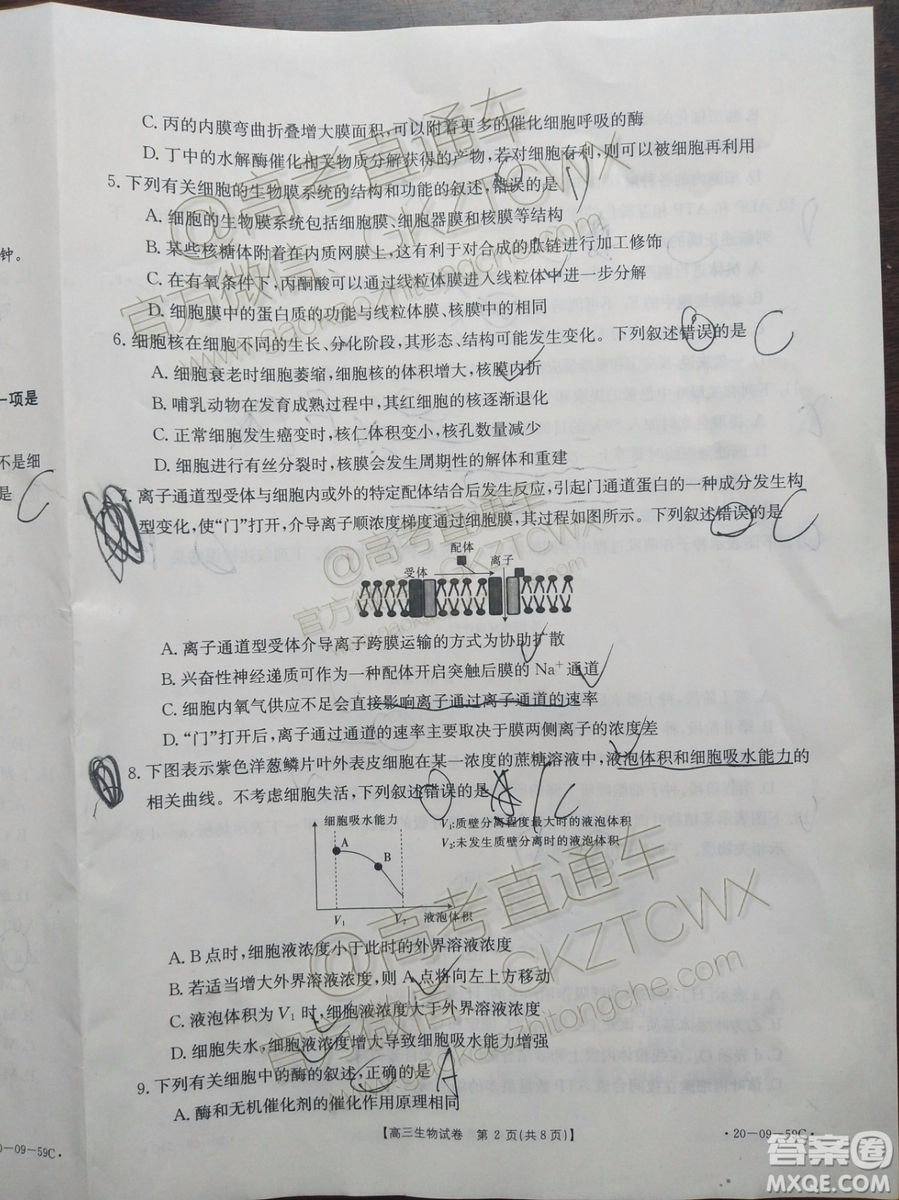 C. 丙的内膜弯曲折叠增大膜面积,可以附着更多的催化细胞呼吸的酶
D. 丁中的水解酶催化相关物质分解获得的产物,若对细胞有利,则可以被再利用
5. 下列有关细胞的生物膜系统的结构和功能的叙述,错误的是
A. 细胞的生物膜系统包括细胞膜、细胞器膜和核膜等结构
B. 某些核糖体附着在内质网膜上,这有利于对合成的肽链进行加工修饰
C. 在有氧条件下,丙酮酸可以通过线粒体膜进入线粒体中进一步分解
D. 细胞膜中的蛋白质的功能与线粒体膜、核膜中的相同
6. 细胞核在细胞不同的生长、分化阶段,其形态、结构可能发生变化。下列叙述错误的是 C
A. 细胞衰老时细胞萎缩,细胞核的体积增大,核膜内折
B. 哺乳动物在发育成熟过程中,其红细胞的核逐渐退化
C. 正常细胞发生癌变时,核仁体积变小,核孔数量减少
D. 细胞进行有丝分裂时,核膜会发生周期性的解体和重建
7. 离子通道型受体与细胞内或外的特定配体结合后发生反应,引起门通道蛋白的一种成分发生构
型变化,使“门”打开,介导离子顺浓度梯度通过细胞膜,其过程如图所示。下列叙述错误的是 C
配体
受体 离子
A. 离子通道型受体介导离子跨膜运输的方式为协助扩散
B. 兴奋性神经递质可作为一种配体开启突触后膜的 Na⁺ 通道
C. 细胞内氧气供应不足会直接影响离子通过离子通道的速率
D. “门”打开后,离子通道的速率主要取决于膜两侧离子的浓度差
8. 下图表示紫色洋葱鳞片叶外表皮细胞在某一浓度的蔗糖溶液中,液泡体积和细胞吸水能力的
相关曲线。不考虑细胞失活,下列叙述错误的是 C
细胞吸水能力
V₁:质壁分离程度最大时的液泡体积
V₂:未发生质壁分离时的液泡体积
A
B
V₁ V₂ 液泡体积
A. B 点时,细胞液浓度小于此时的外界溶液浓度
B. 若适当增大外界溶液浓度,则 A 点将向左上方移动
C. 液泡体积为 V₁ 时,细胞液浓度大于外界溶液浓度
D. 细胞失水,细胞液浓度增大导致细胞吸水能力增强
9. 下列有关细胞中的酶的叙述,正确的是 A
A. 酶和无机催化剂的催化作用原理相同
【高三生物试卷 第 2 页(共 8 页)】
·20-09-59C·
钟。
一项是
不是细
是 C
0-09-59C·
@高考直通车
官方微信:GKZTCWX
www.gaokaozhitongche.com
答案圈
MXQE.COM